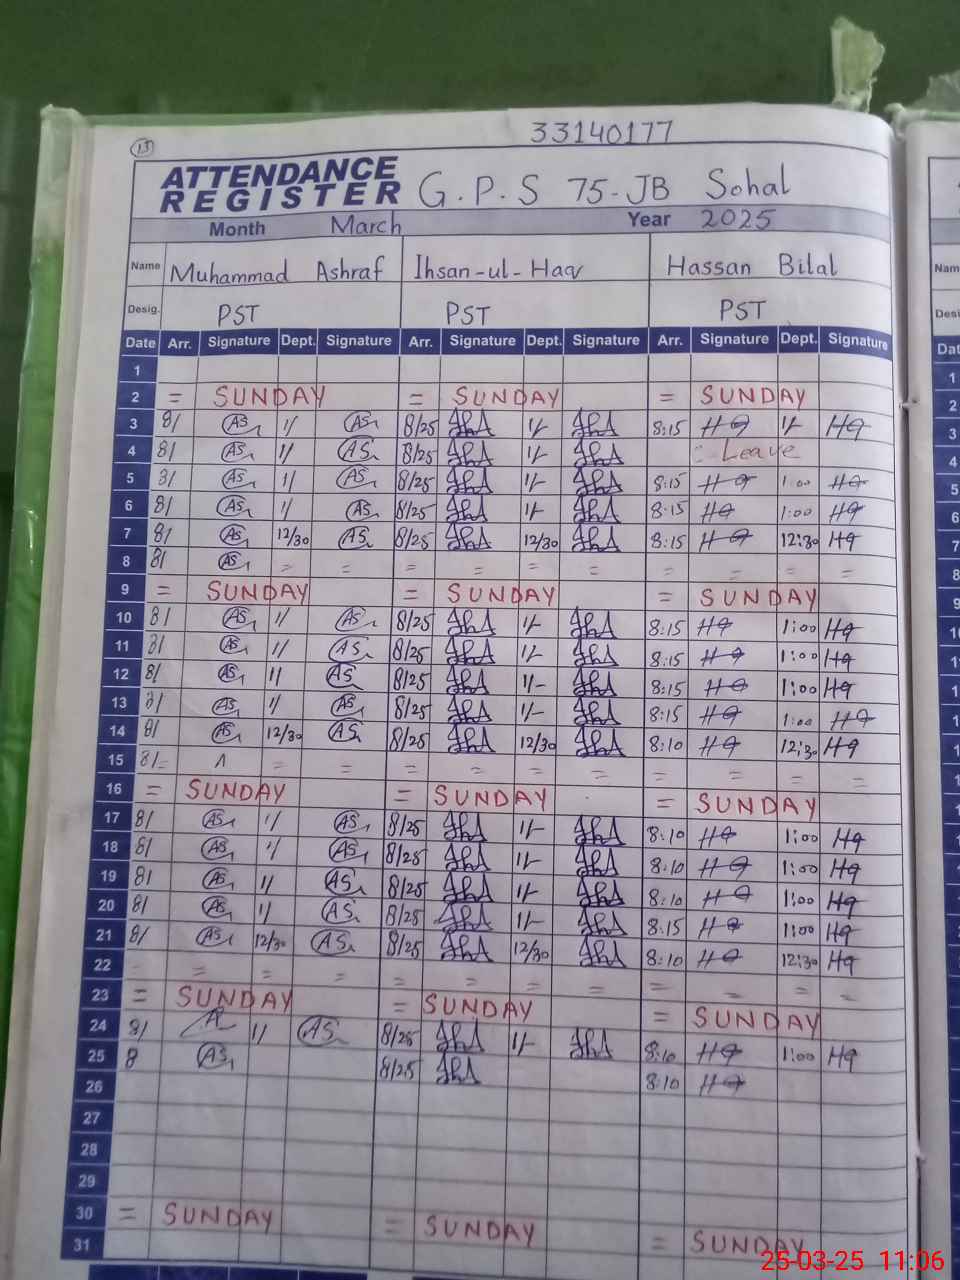 13
33140177
ATTENDANCE REGISTER G.P.S 75-JB Sohal
Month March Year 2025
Name Muhammad Ashraf Ihsan-ul-Haq Hassan Bilal
Desig. PST PST PST
Date Arr. Signature Dept. Signature Arr. Signature Dept. Signature Arr. Signature Dept. Signature
1
2 = SUNDAY = SUNDAY = SUNDAY
3 8/ AS 1/ AS 8/25 1/- 8:15 HQ 1/- HQ
4 8/ AS 1/ AS 8/25 1/- Leave
5 8/ AS 1/ AS 8/25 1/- 8:15 HQ 1:00 HQ
6 8/ AS 1/ AS 8/25 1/- 8:15 HQ 1:00 HQ
7 8/ AS 12/30 AS 8/25 12/30 8:15 HQ 12:30 HQ
8 8/ AS = = = = = = = = = =
9 = SUNDAY = SUNDAY = SUNDAY
10 8/ AS 1/ AS 8/25 1/- 8:15 HQ 1:00 HQ
11 8/ AS 1/ AS 8/25 1/- 8:15 HQ 1:00 HQ
12 8/ AS 1/ AS 8/25 1/- 8:15 HQ 1:00 HQ
13 8/ AS 1/ AS 8/25 1/- 8:15 HQ 1:00 HQ
14 8/ AS 12/30 AS 8/25 12/30 8:10 HQ 12:30 HQ
15 8/ = = = = = = = = = =
16 = SUNDAY = SUNDAY = SUNDAY
17 8/ AS 1/ AS 8/25 1/- 8:10 HQ 1:00 HQ
18 8/ AS 1/ AS 8/25 1/- 8:10 HQ 1:00 HQ
19 8/ AS 1/ AS 8/25 1/- 8:10 HQ 1:00 HQ
20 8/ AS 1/ AS 8/25 1/- 8:15 HQ 1:00 HQ
21 8/ AS 12/30 AS 8/25 12/30 8:10 HQ 12:30 HQ
22 = = = = = = = = = = =
23 = SUNDAY = SUNDAY = SUNDAY
24 8/ 1/ AS 8/25 1/- 8:10 HQ 1:00 HQ
25 8 AS 8/25 8:10 HQ
26
27
28
29
30 = SUNDAY = SUNDAY = SUNDAY
31
25-03-25 11:06